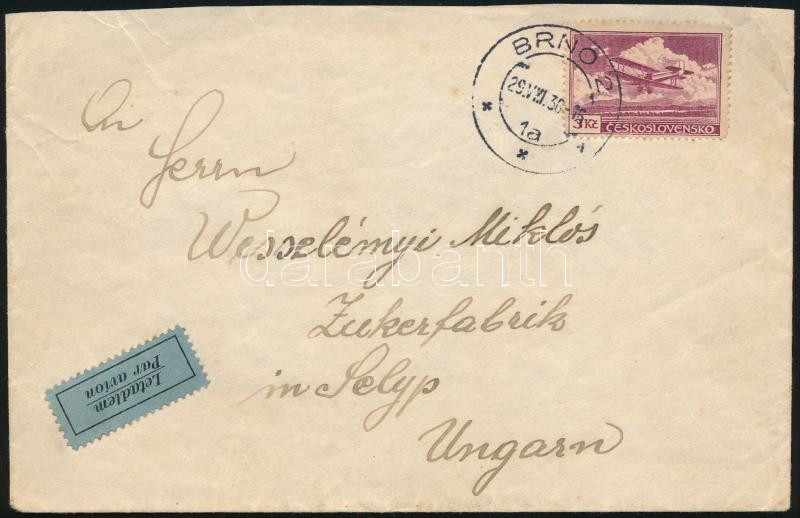 BRNO 2
29.VIII.36-16
1a
3 Kč
ČESKOSLOVENSKO
An
Herrn
Wesselényi Miklós
darabanth
Zukerfabrik
in Selyp
Ungarn
Letadlem
Par avion